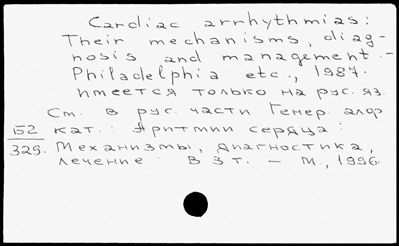 Cardiac arrhythmias:
Their mechanisms, diag-
nosis and management. -
Philadelphia etc., 1987.
имеется только на рус. яз.
См. в рус. части Генер. алф.
Б2 кат.: Аритмии сердца:
329. Механизмы, диагностика,
лечение: В 3 т. - М., 1996.